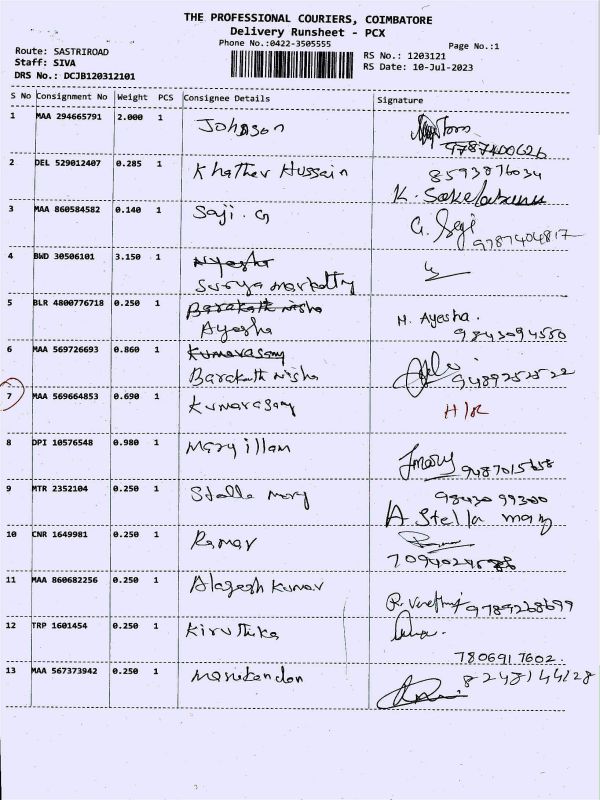 THE PROFESSIONAL COURIERS, COIMBATORE
Delivery Runsheet - PCX
Phone No.:0422-3505555
Page No.:1
Route: SASTRIROAD
Staff: SIVA
DRS No.: DCJB120312101
RS No.: 1203121
RS Date: 10-Jul-2023
S No Consignment No Weight PCS Consignee Details Signature
1 MAA 294665791 2.000 1 Johnson
9787400626
2 DEL 529012407 0.285 1 Khather Hussain 8593876034
K.
3 MAA 860584582 0.140 1 Saji. G G. Segi
9787404817
4 BWD 30506101 3.150 1 Ayesha
Surya marketing
5 BLR 4800776718 0.250 1 Barakath nisha H. Ayesha.
Ayesha 9843094550
6 MAA 569726693 0.860 1 Kumarasamy
Barakath nisha 9489252522
7 MAA 569664853 0.690 1 Kumarasamy H/R
8 DPI 10576548 0.980 1 Mary illam Jmary 9487015658
9 MTR 2352104 0.250 1 Stella mary 98430 99300
A Stella mary
10 CNR 1649981 0.250 1 Raman
11 MAA 860682256 0.250 1 Alagesh Kumar
R. 9789268699
12 TRP 1601454 0.250 1 Kiruthika
7806917602.
13 MAA 567373942 0.250 1 Manikandan 8248144128